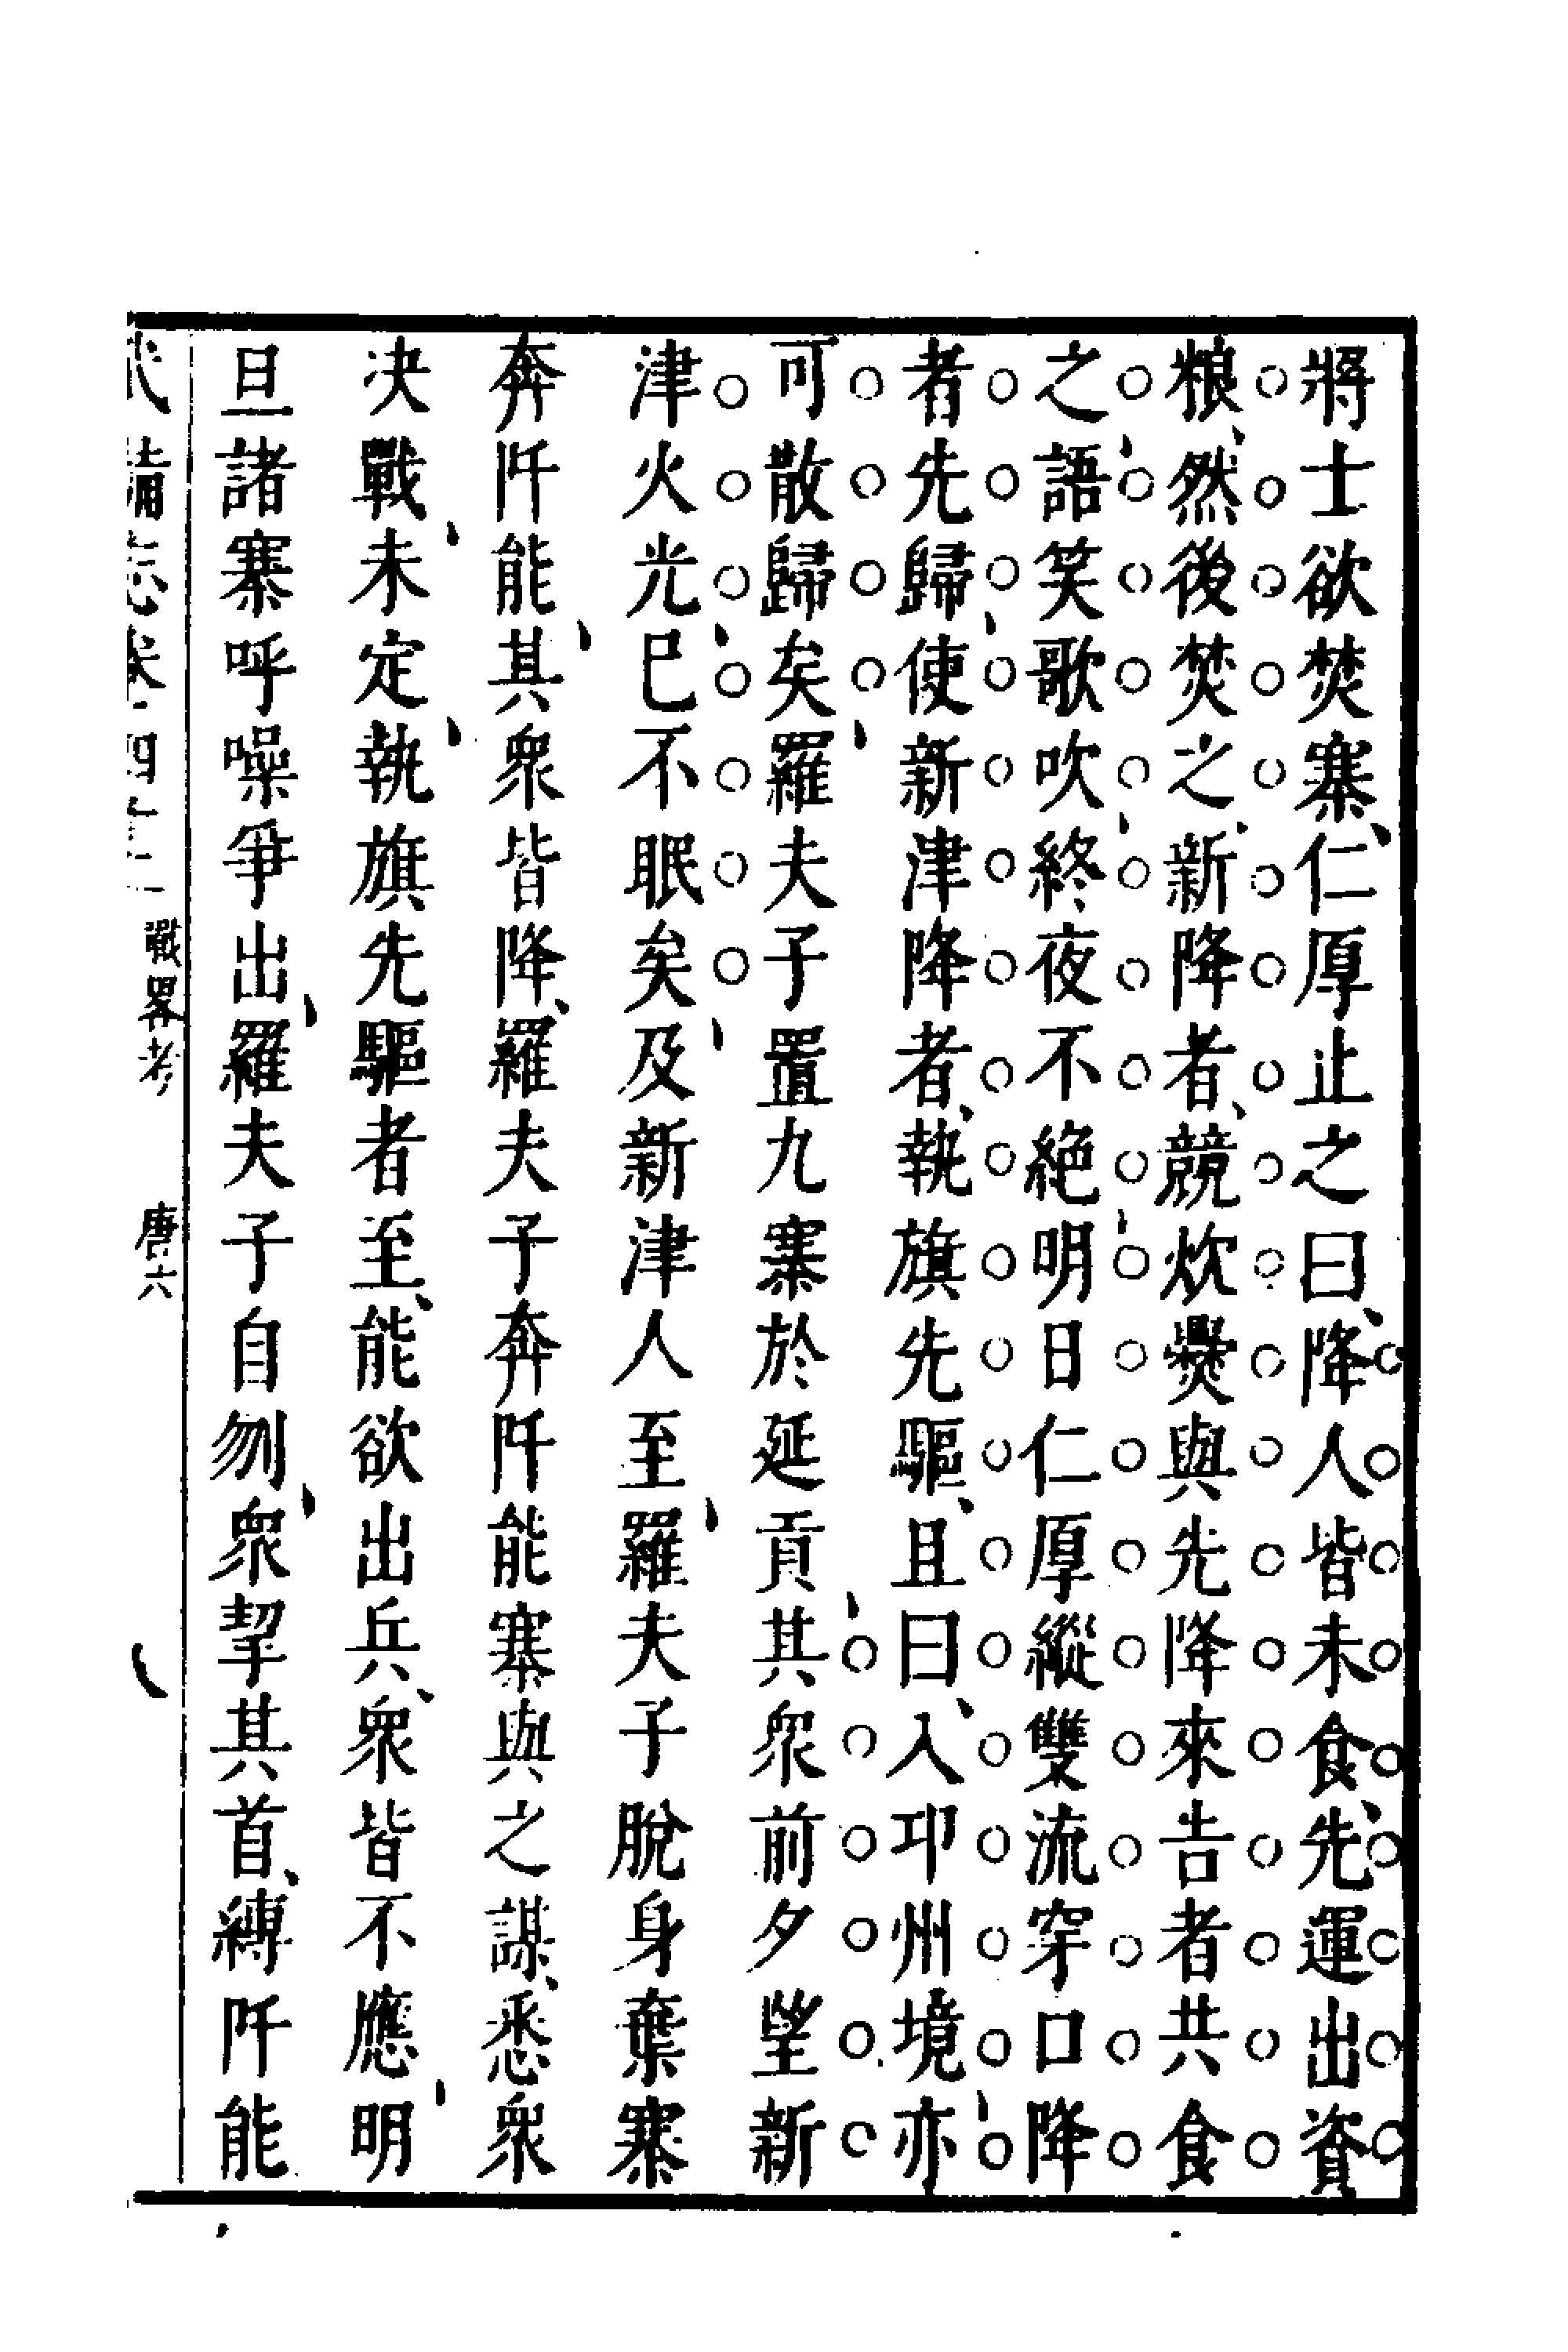 將士欲焚寨仁厚止之曰降人皆未食先運出資
粮然後焚之新降者競炊爨與先降來告者共食
之語笑歌吹終夜不絶明日仁厚縱雙流穿口降
者先歸使新津降者執旗先驅且曰入邛州境亦
可散歸矣羅夫子置九寨於延貢其衆前夕望新
津火光已不眠矣及新津人至羅夫子脫身棄寨
奔阡能其衆皆降羅夫子奔阡能寨與之謀悉衆
决戰未定執旗先驅者至能欲出兵衆皆不應明
旦諸寨呼噪爭出羅夫子自刎衆挈其首縛阡能
武備志卷四十二 戰畧考 唐六